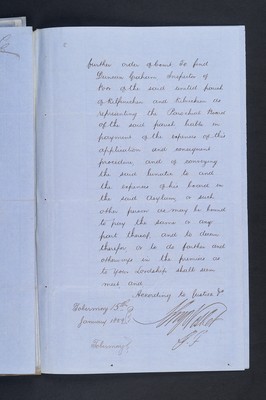 further order of be find
Duncan Graham Inspector of
Poor of the said united parish
of Kilfinichen and Kilvickeon as
representing the Parochial Board
of the said parish liable in
payment of the expenses of this
application and consequent
procedure, and of conveying
the said lunatic to and
the expenses of his board in
the said Asylum, or such
other person as may be bound
to pay the same or any
part thereof, and to decern
therefor or to do further and
otherwise in the premises as
to Your Lordship shall seem
meet and
According to Justice &c
Tobermory 15th
January
Tobermory